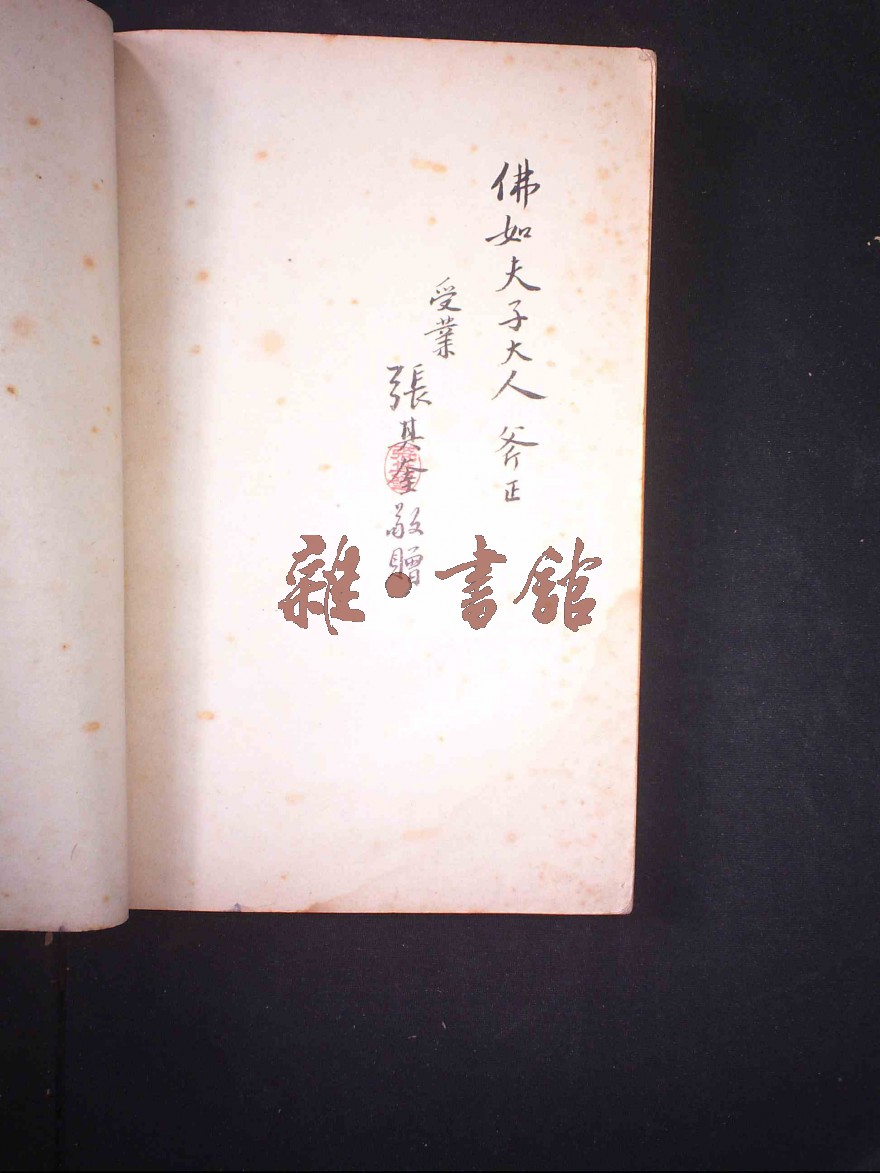 佛如夫子大人 斧正
受業
張其奎 敬贈
雜·書館